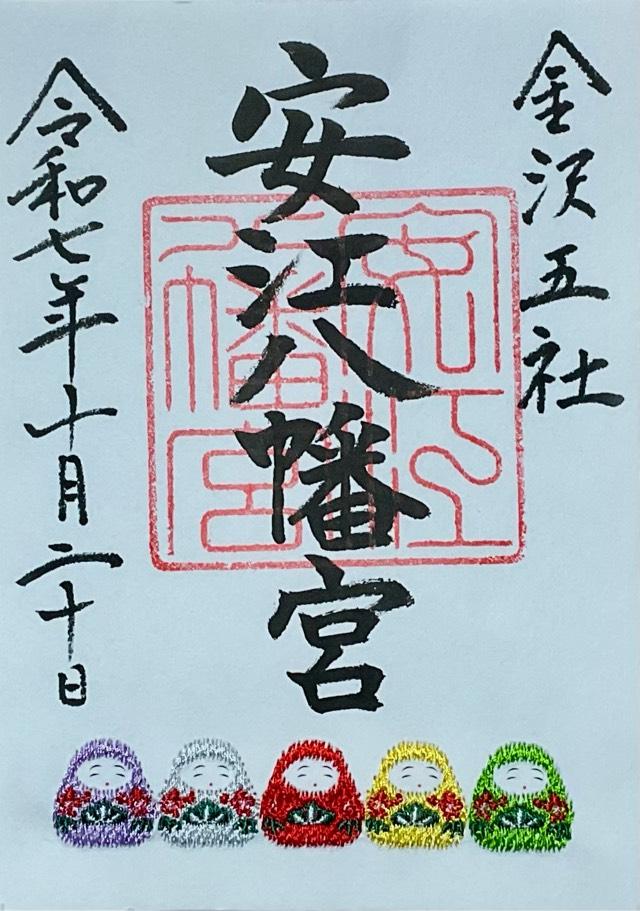 金沢五社
安江八幡宮
令和七年十月二十日
安江八幡宮